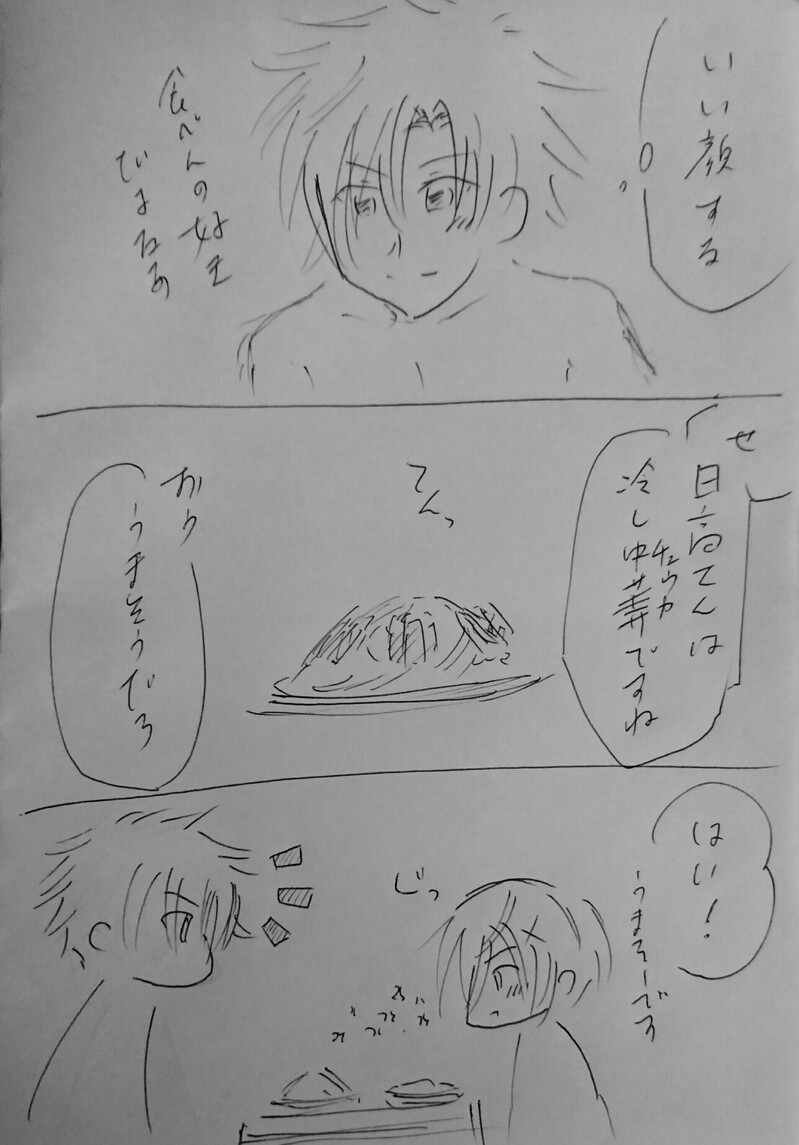 いい顔する
食べんの好き
だよなあ
日高てんは
冷し中華ですね
チュウカ
てんっ
おう
うまそうだろ
はい!
うまそーです
じっ